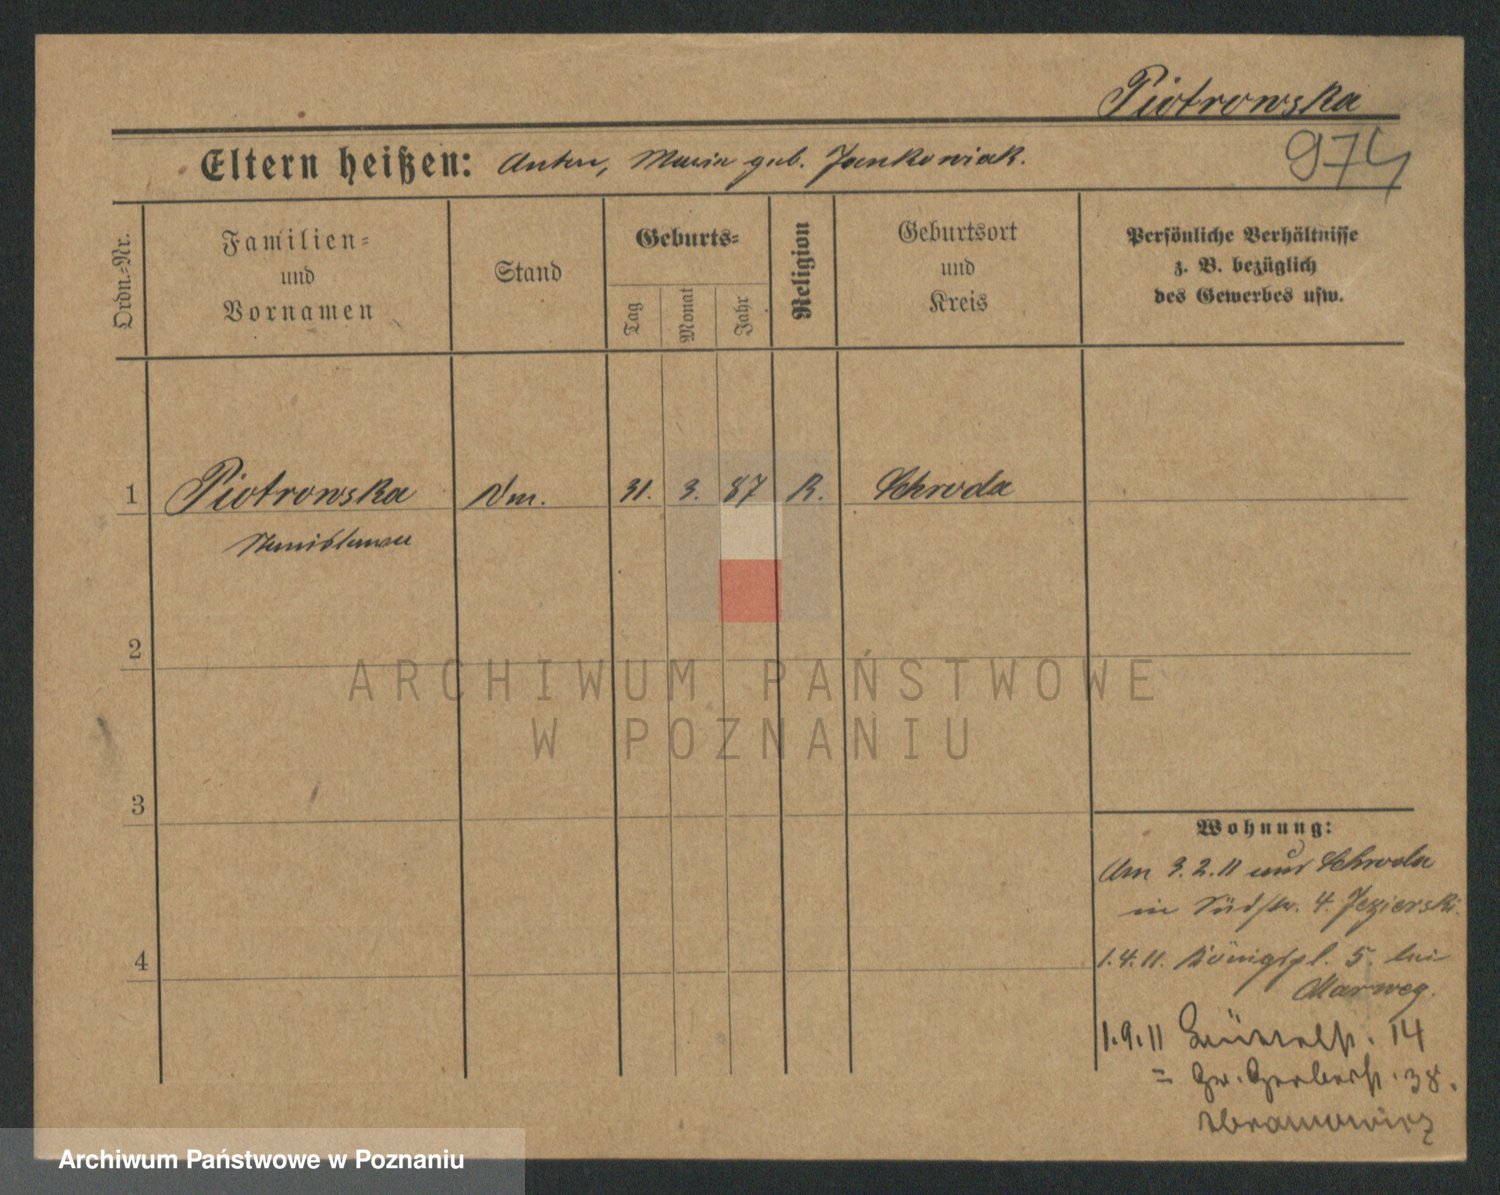 Piotrowska
974
Eltern heißen: Anton, Maria geb. Jankowiak.
Ordn.-Nr.
Familien- und Vornamen
Stand
Geburts-
Tag
Monat
Jahr
Religion
Geburtsort und Kreis
Persönliche Verhältnisse
z. B. bezüglich
des Gewerbes usw.
1 Piotrowska 31. 3. 87 K. Schroda
Stanislawa
2
3
4
Wohnung:
Am 3.2.11 aus Schroda
in Südstr. 4. Jezierski.
1.4.11. Königspl. 5. bei
Marweg.
1.9.11 14
= Gr. Gerberst. 38.
Abramowicz
ARCHIWUM PAŃSTWOWE
W POZNANIU
Archiwum Państwowe w Poznaniu